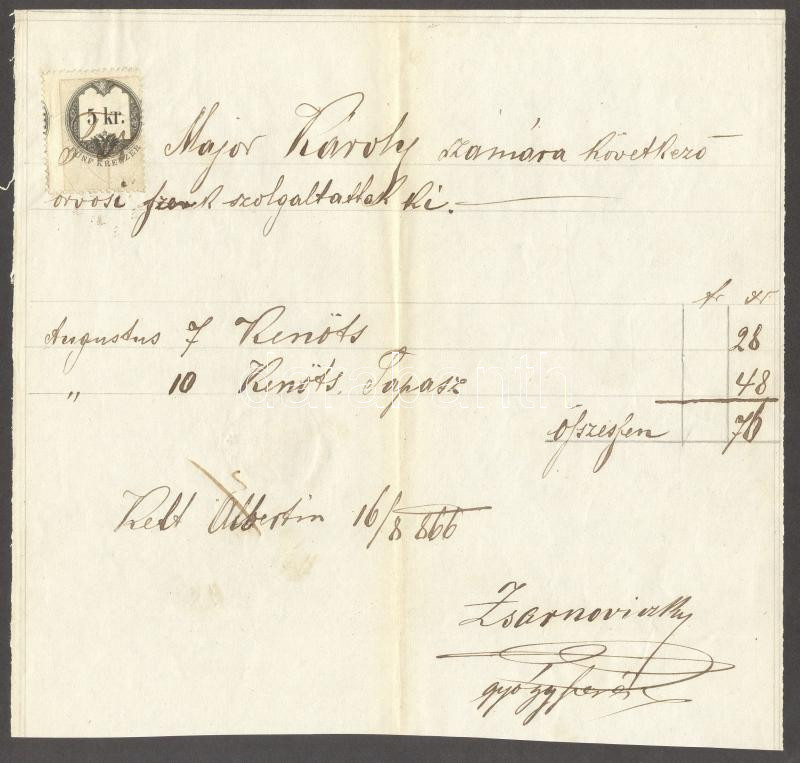 5 kr.
FÜNF KREUZER
Major Károly számára következő
orvosi szerek szolgáltattak ki.
fr xr
Augustus 7 Kenőts 28
" 10 Kenőts. Tapasz 48
összessen 76
Kelt Albertin 16/8 866
Zsarnoviczky
gyógyszerész